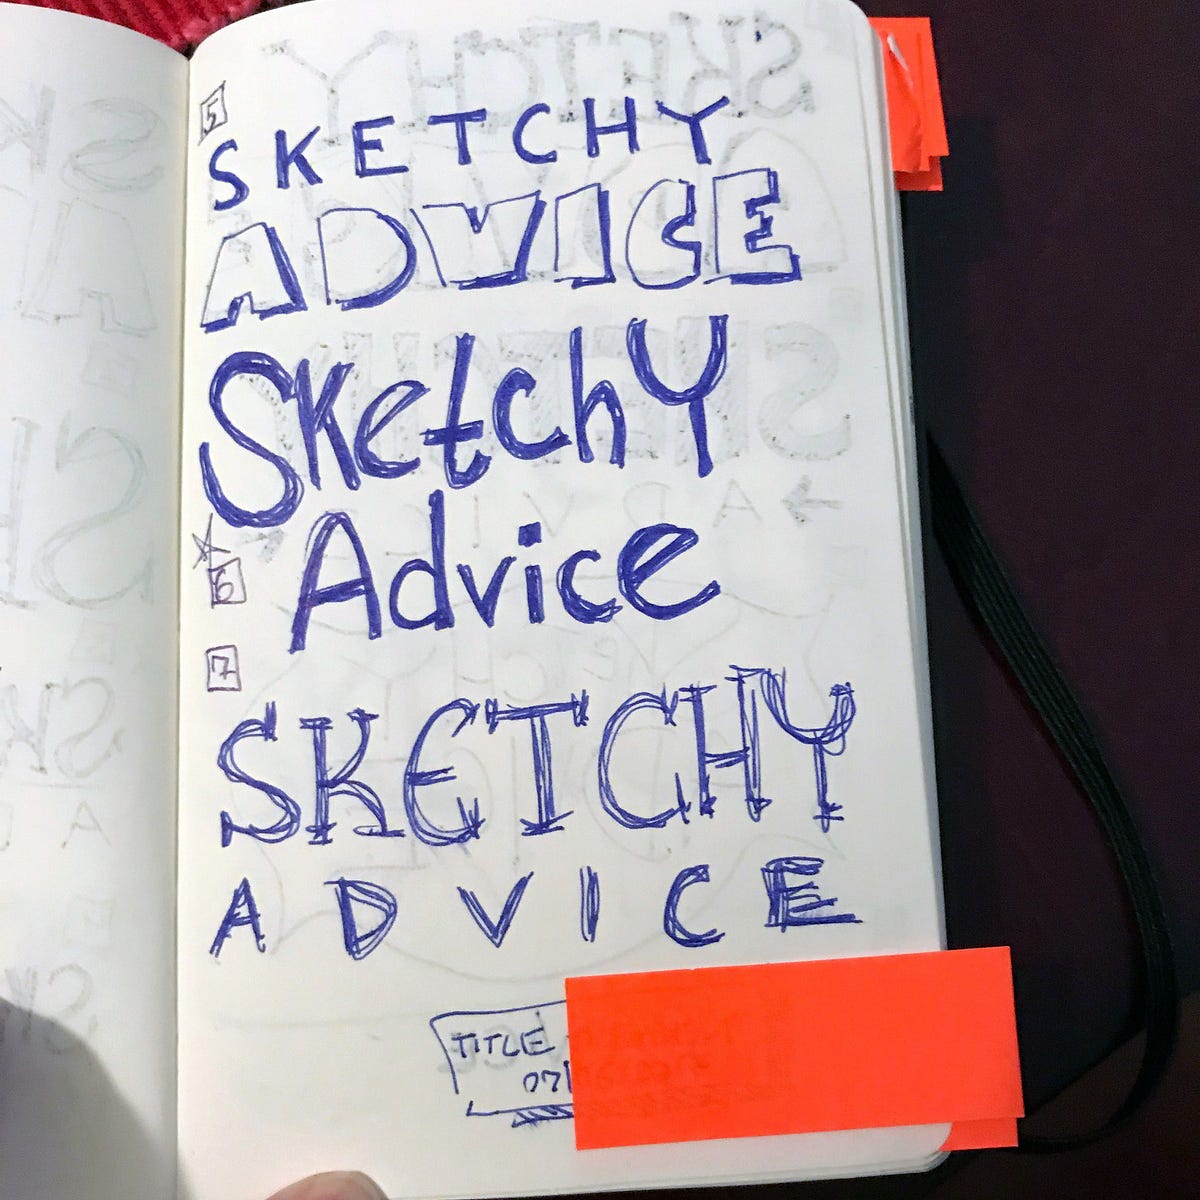 5
SKETCHY
ADVICE
SketchY
Advice
6
7
SKETCHY
ADVICE
TITLE
07